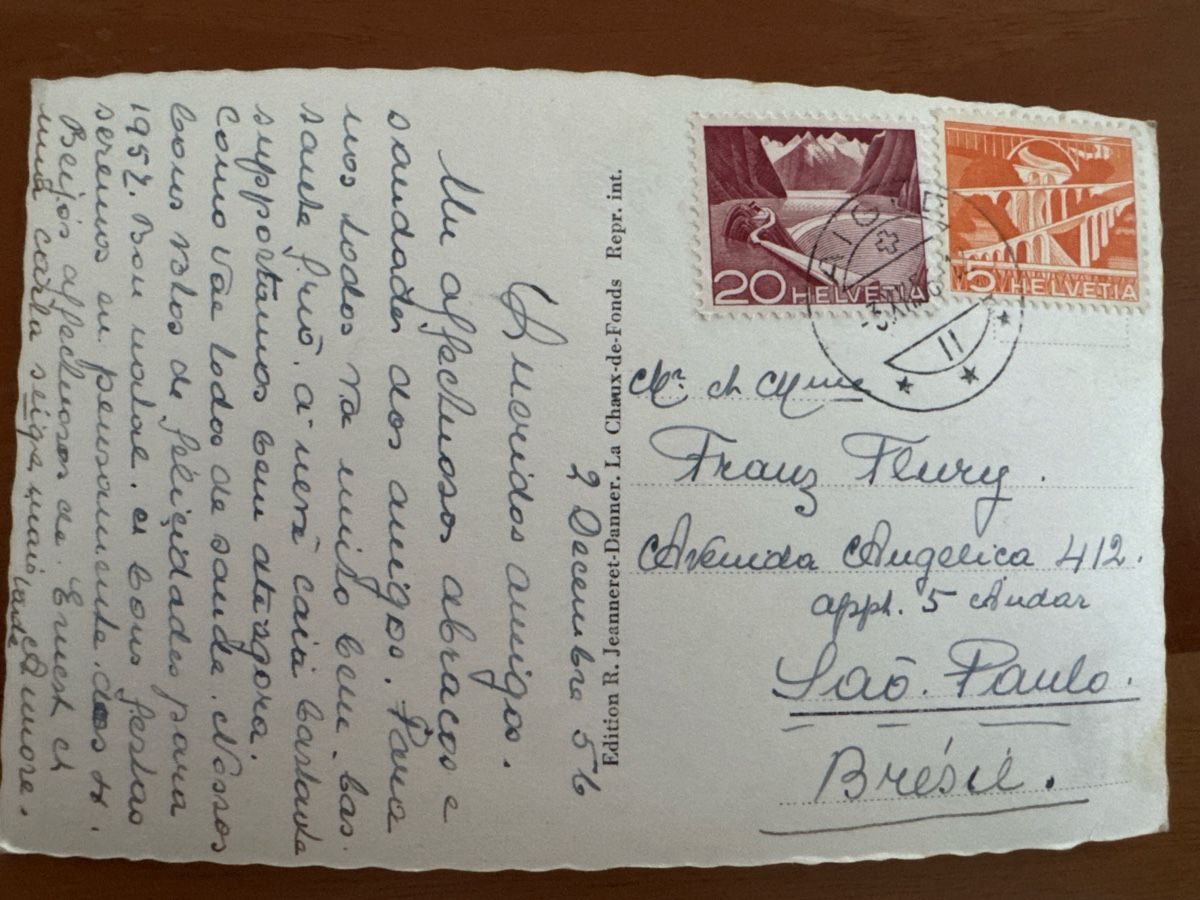 2 Decembre 56
Queridos amigos.
Um affectuoso abraco e
saudades dos amigos. Para
nos todos va muito bem, bas
tante friõ, a neve caiu bastante
supportamos bem ate agora.
Como vâe todos de saude. Nossos
bons vótos de féliçidades para
1957. Bon natal. e bons festas
seremos em pensamente. dos
Beijos affectuosos de. Ernest et
Aimore.
uma carta seiga mais tarde
Edition R. Jeanneret-Danner. La Chaux-de-Fonds Repr. int.
20 HELVETIA
5 HELVETIA
II
Mr. et Mme
Franz Fleury.
Avenida Angelica 412.
appt. 5 Andar
Saõ. Paulo.
Brésil.